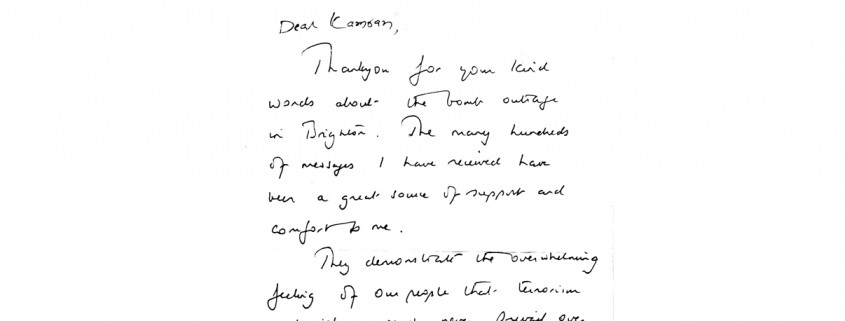 Dear Kamran,
Thankyou for your kind
words about the bomb outrage
in Brighton. The many hundreds
of messages I have received have
been a great source of support and
comfort to me.
They demonstrate the overwhelming
feeling of our people that terrorism
never prevail over